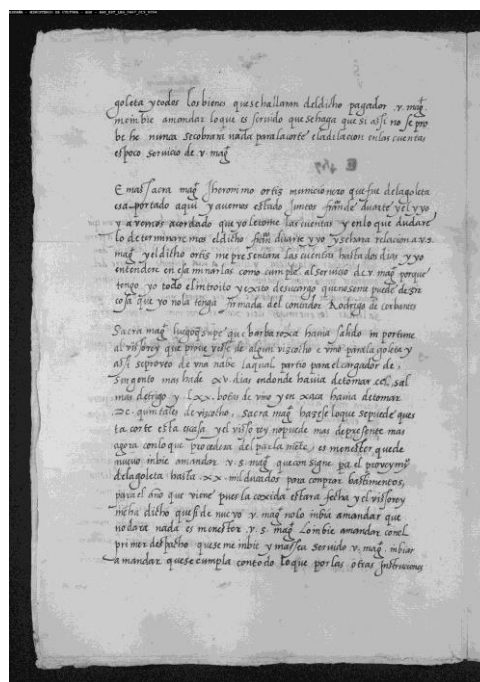 goleta y todos los bienes que se hallaran del dicho pagador . v. mag.
me mbie a mandar lo que es servido que se haga que si assi no se pro
behe nunca se cobrara nada para la corte e la dilacion en las cuentas
es poco servicio de . v. mag
E mas sacra mag Jheronimo ortis municionero que fue de la goleta
es a portado aqui y avemos estado Juntos fran de duarte y el y yo
y avemos acordado que yo le tome las cuentas y en lo que dudare
lo determinaremos el dicho fran duarte y yo y se hara relacion a . v. s.
mag y el dicho ortis me presentara las cuentas hasta dos dias y yo
entendere en esaminarlas como cumple al servicio de . v mag porque
tengo yo todo el introito y exito descargo que no se me puede dezir
cosa que yo no la tenga firmada del contador Rodrigo de
Sacra mag luego q supe que barbaroxa havia salido in portune
al vissorey que proveyesse de algun viscocho e vino para la goleta y
assi se proveo de una nabe la qual partio para el cargador de
Surgento mas ha de xv. dias en donde havia de tomar sal
mas de trigo y lxx. botas de vino y en xaca havia de tomar
De . quintales de viscocho , sacra mag hazese lo que se puede ques
ta corte esta escasa y el vissorey no puede mas de presente mas
agora con lo que procedera del parlamete , es menester que de
nuevo imbie a mandar . v. s. mag que consigne pa el
de la goleta hasta . xx . mil ducados para comprar bastimentos,
para el año que viene pues la coxida estara fecha y el vissorey
me ha dicho que si de nuevo v. mag no lo imbia a mandar que
no dara nada es menester . v. s. mag lo imbie a mandar con el
primer despacho que se me imbie y mas sea servido v. mag. imbiar
a mandar que se cumpla con todo lo que por las otras Instruciones